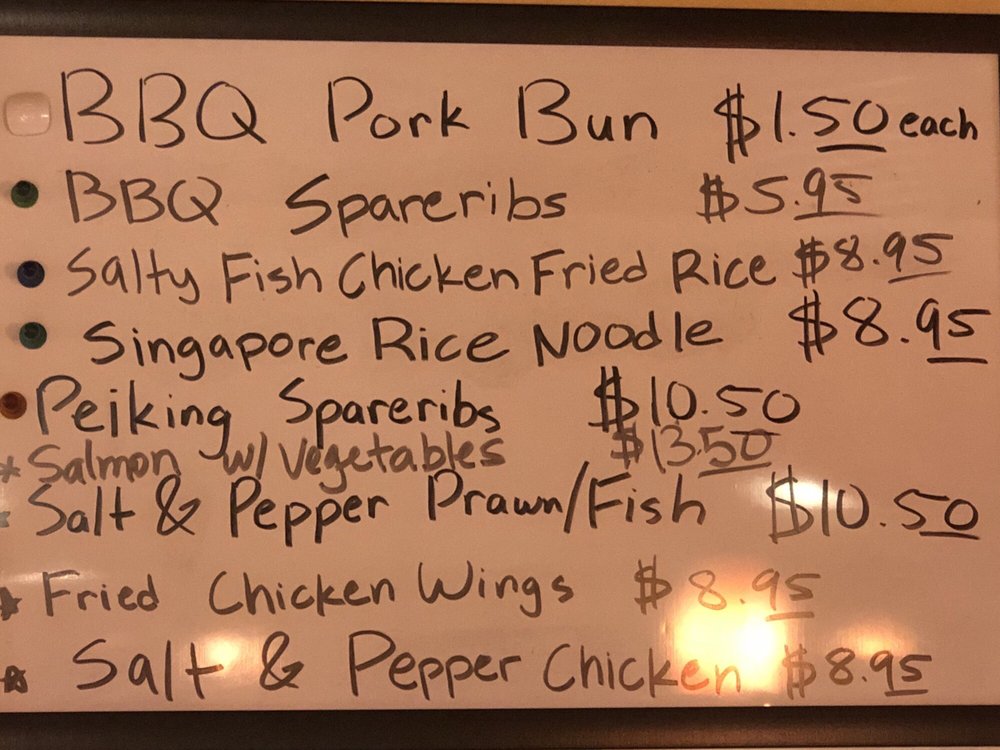 BBQ Pork Bun $1.50 each
BBQ Spareribs $5.95
Salty Fish Chicken Fried Rice $8.95
Singapore Rice Noodle $8.95
Peiking Spareribs $10.50
Salmon w/ Vegetables $13.50
Salt & Pepper Prawn/Fish $10.50
Fried Chicken Wings $8.95
Salt & Pepper Chicken $8.95